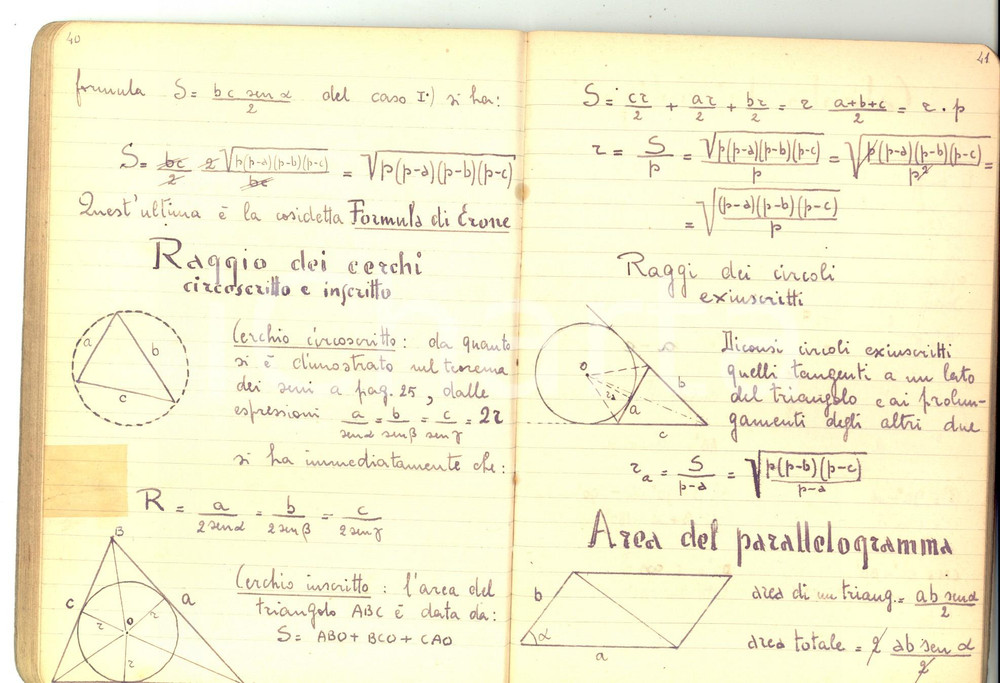 40
formula S = bc sen α / 2 del caso I°) si ha:
S = bc / 2 2 √p(p-a)(p-b)(p-c) / bc = √p(p-a)(p-b)(p-c)
Quest'ultima è la cosidetta Formula di Erone
Raggio dei cerchi
circoscritto e inscritto
a
b
c
Cerchio circoscritto: da quanto
si è dimostrato sul teorema
dei seni a pag. 25, dalle
espressioni a / sen α = b / sen β = c / sen γ = 2r
si ha immediatamente che:
R = a / 2 sen α = b / 2 sen β = c / 2 sen γ
B
c
a
r
r
o
r
Cerchio inscritto: l'area del
triangolo ABC è data da:
S = ABO + BCO + CAO
41
S = cr / 2 + ar / 2 + br / 2 = r a+b+c / 2 = r · p
r = S / p = √p(p-a)(p-b)(p-c) / p = √p(p-a)(p-b)(p-c) / p² =
= √(p-a)(p-b)(p-c) / p
Raggi dei circoli
exinscritti
o
b
a
c
Diconsi circoli exinscritti
quelli tangenti a un lato
del triangolo e ai prolun-
gamenti degli altri due
rₐ = S / p-a = √p(p-b)(p-c) / p-a
Area del parallelogramma
b
α
a
area di un triang. = ab sen α / 2
area totale = 2 ab sen α / 2